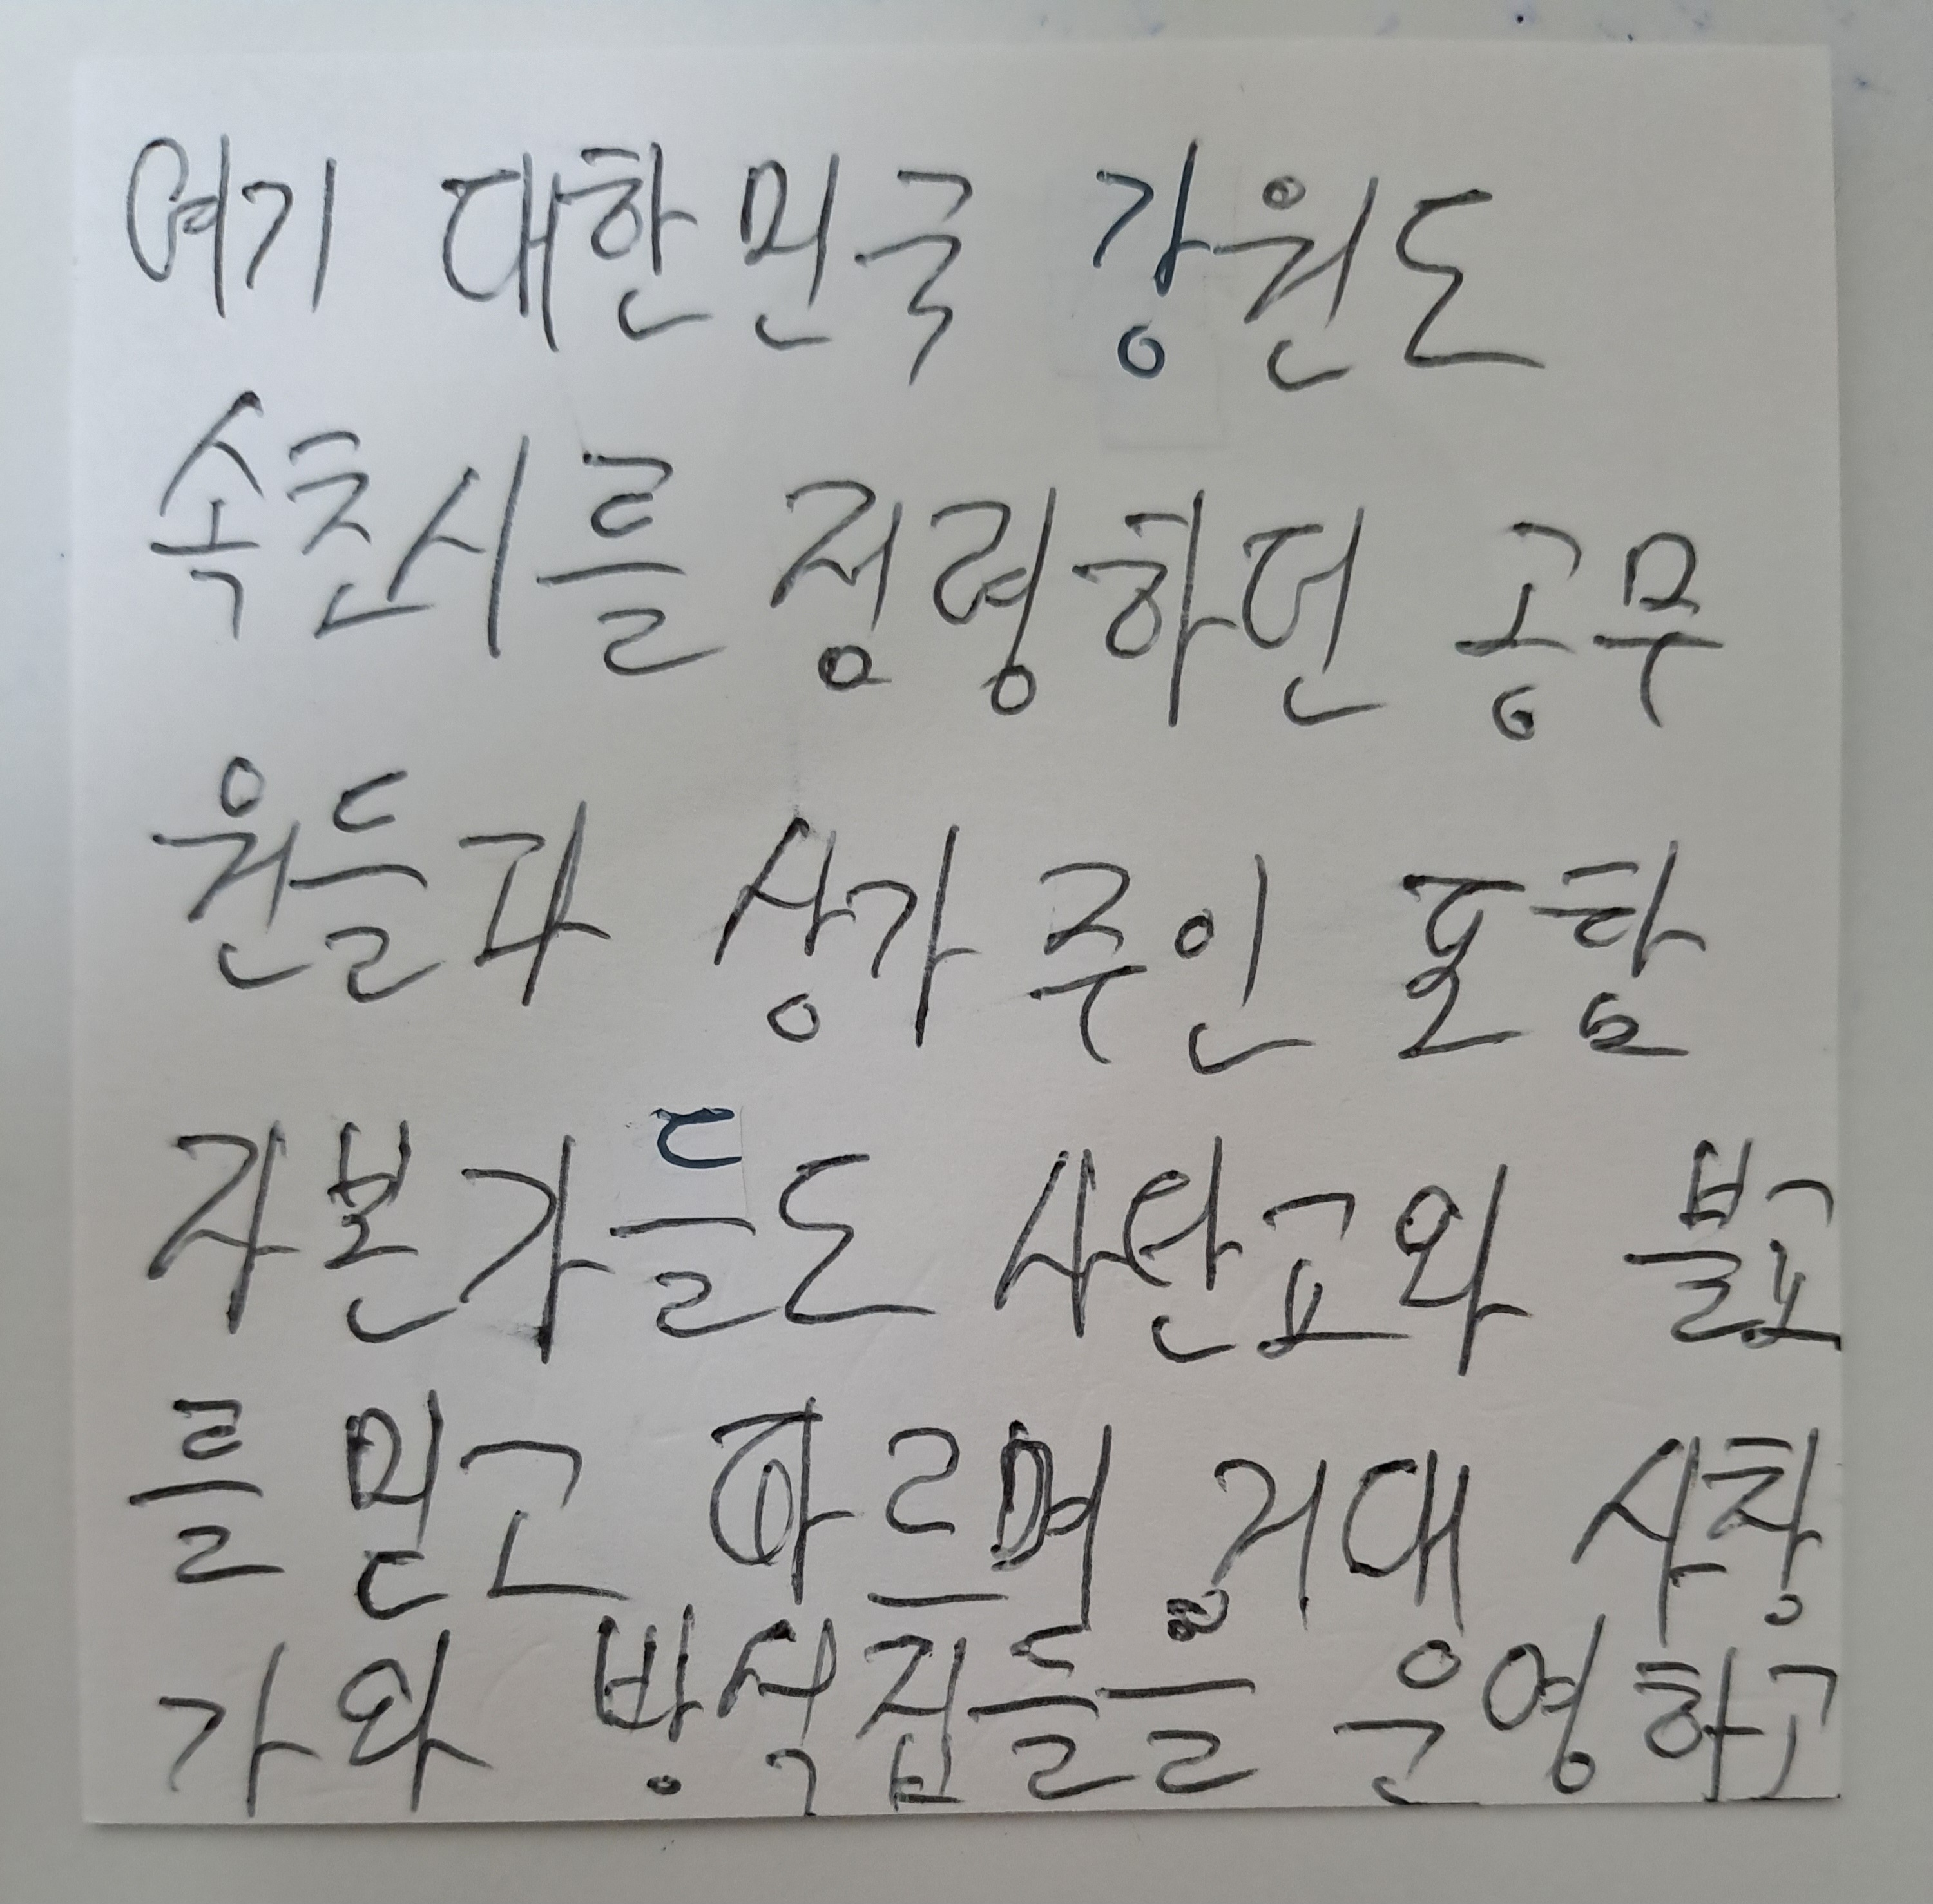 여기 대한민국 강원도
속초시를 점령하던 공무
원들과 상가 주인 포함
자본가들도 사탄교와 불교
를 믿고 따르며 거대 사창
가와 방석집들을 운영하고